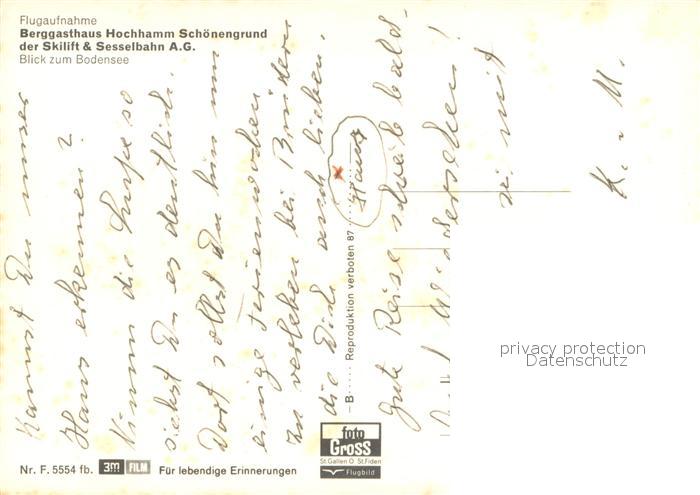 Flugaufnahme
Berggasthaus Hochhamm Schönengrund
der Skilift & Sesselbahn A.G.
Blick zum Bodensee
Kannst Du unser
Haus erkennen?
Nimm die Lupe so
siehst Du es deutlich.
Dort sollst Du hin um
einige Ferienwochen
zu verleben bei Brüdern
die Dich auch lieben.
Gute Reise schreib bald -
Wiedersehen!
mit
K. u. M.
– B ····· Reproduktion verboten 87
Nr. F. 5554 fb.
3M FILM
Für lebendige Erinnerungen
foto
GROSS
St.Gallen O St.Fiden
Flugbild
privacy protection
Datenschutz